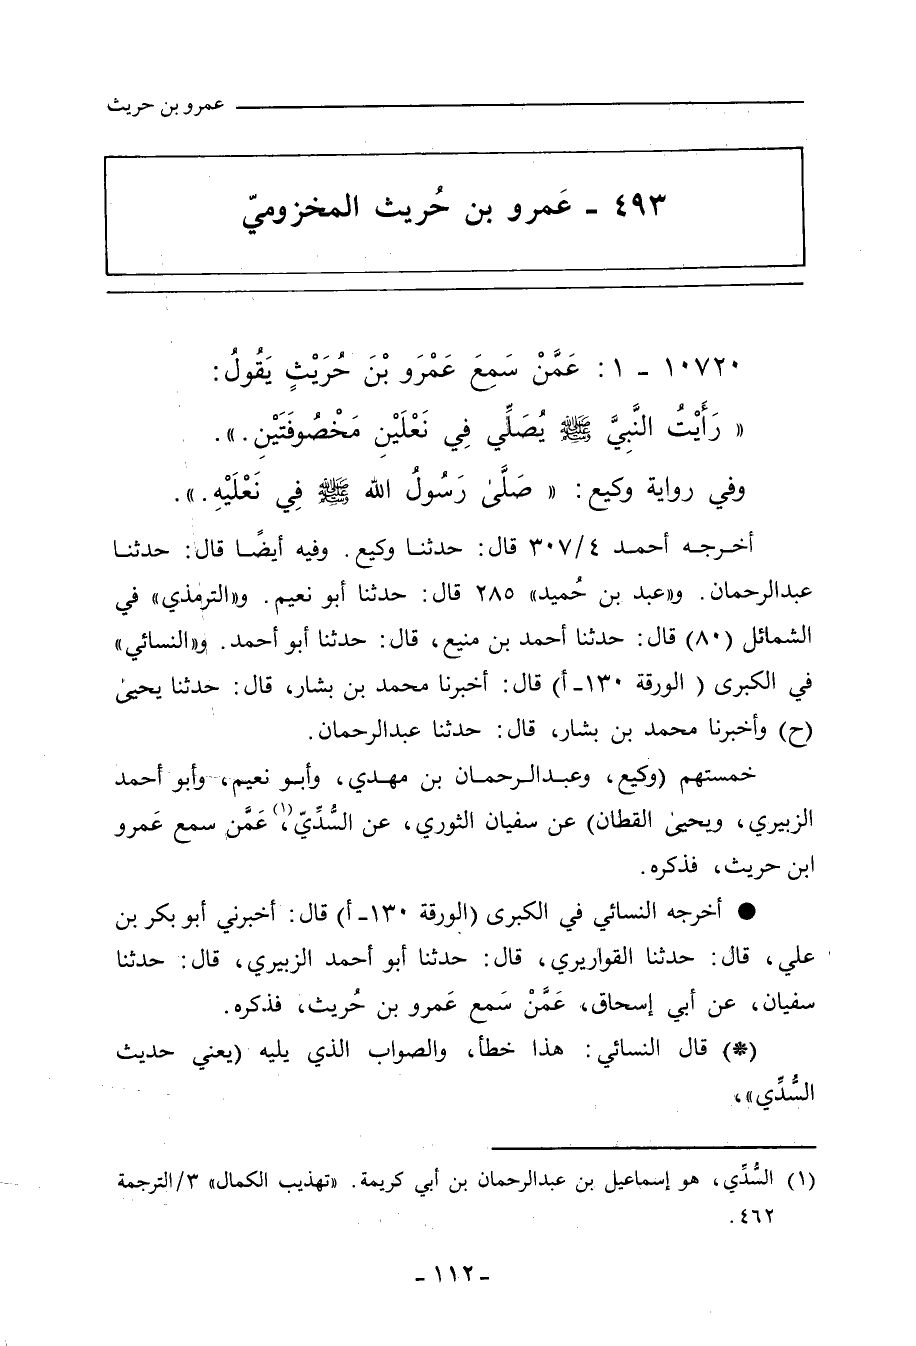 عمرو بن حريث
٤٩٣ - عَمرو بن حُريث المخزوميّ
١٠٧٢٠ - ١ : عَمَّنْ سَمِعَ عَمْرَو بْنَ حُرَيْثٍ يَقُولُ :
« رَأَيْتُ النَّبِيَّ ﷺ يُصَلِّي فِي نَعْلَيْنِ مَخْصُوفَتَيْنِ . » .
وفي رواية وكيع : « صَلَّىٰ رَسُولُ الله ﷺ فِي نَعْلَيْهِ . » .
أخرجه أحمد ٣٠٧/٤ قال : حدثنا وكيع . وفيه أيضًا قال : حدثنا
عبدالرحمان . و«عبد بن حُميد» ٢٨٥ قال : حدثنا أبو نعيم . و«الترمذي» في
الشمائل (٨٠) قال : حدثنا أحمد بن منيع ، قال : حدثنا أبو أحمد . و«النسائي»
في الكبرى ( الورقة ١٣٠ـ أ) قال : أخبرنا محمد بن بشار، قال : حدثنا يحيىٰ
(ح) وأخبرنا محمد بن بشار، قال : حدثنا عبدالرحمان .
خمستهم (وكيع ، وعبدالرحمان بن مهدي ، وأبو نعيم ، وأبو أحمد
الزبيري ، ويحيىٰ القطان) عن سفيان الثوري ، عن السُّدِّيّ(١)، عَمَّن سمع عَمرو
ابن حريث ، فذكره .
● أخرجه النسائي في الكبرى (الورقة ١٣٠ـ أ) قال : أخبرني أبو بكر بن
علي ، قال : حدثنا القواريري ، قال : حدثنا أبو أحمد الزبيري ، قال : حدثنا
سفيان ، عن أبي إسحاق ، عَمَّنْ سَمع عَمرو بن حُريث ، فذكره .
(*) قال النسائي : هذا خطأ، والصواب الذي يليه (يعني حديث
السُّدِّي»،
(١) السُّدِّي ، هو إسماعيل بن عبدالرحمان بن أبي كريمة . «تهذيب الكمال» ٣/الترجمة
٤٦٢ .
- ١١٢ -